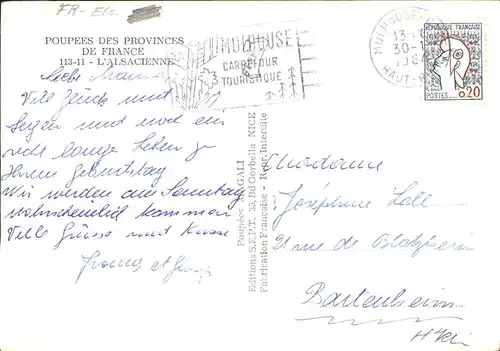 FR-Els.
POUPEES DES PROVINCES
DE FRANCE
113-11 - L'ALSACIENNE
MULHOUSE
CARREFOUR
TOURISTIQUE
MULHOUSE
13-
30-
196
HAUT-R
REPUBLIQUE FRANÇAISE
POSTES 0,20
Liebe
Viele Glück und
Segen und noch ein
recht langes Leben zu
Ihrem Geburtstag
Wir werden am Sonntag
wahrscheinlich kommen
Viele Grüsse und Küsse
Poupées MAGALI
Editions S.E.P.T. 35, Bd Gorbella NICE
Fabrication Française - Repr. Interdite
Madame
Joséphine
21 rue de Blotzheim
Bartenheim